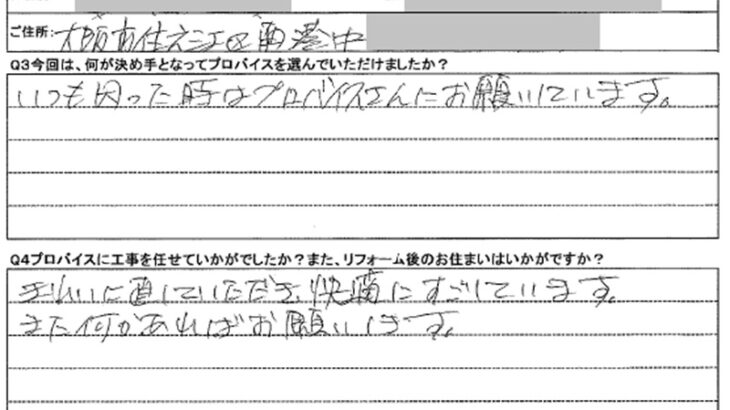 ご住所: 大阪市住之江区南港中
Q3今回は、何が決め手となってプロバイスを選んでいただけましたか？
いつも困った時はプロバイスさんにお願いしています。
Q4プロバイスに工事を任せていかがでしたか？また、リフォーム後のお住まいはいかがですか？
きれいに直していただき、快適にすごしています。
また何かあればお願いします。